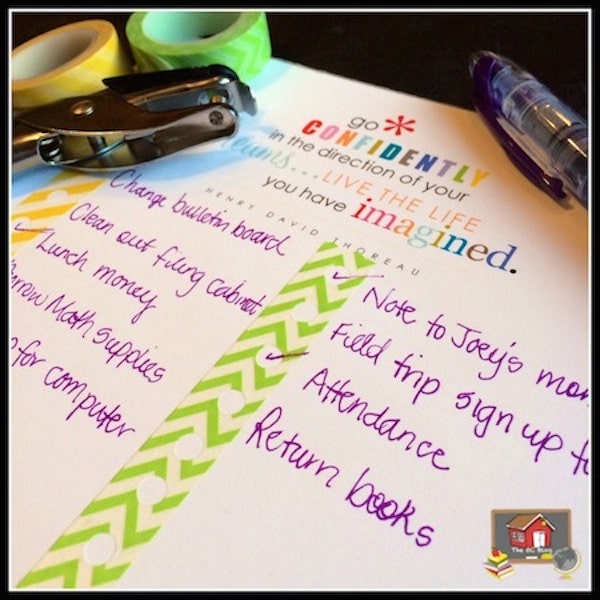 go
CONFIDENTLY
in the direction of your
LIVE THE LIFE
you have imagined.
HENRY DAVID THOREAU
Change bulletin board
Clean out filing cabinet
Lunch money
Math supplies
for computer
Note to Joey's
Field trip sign up
Attendance
Return books
The OC Blog